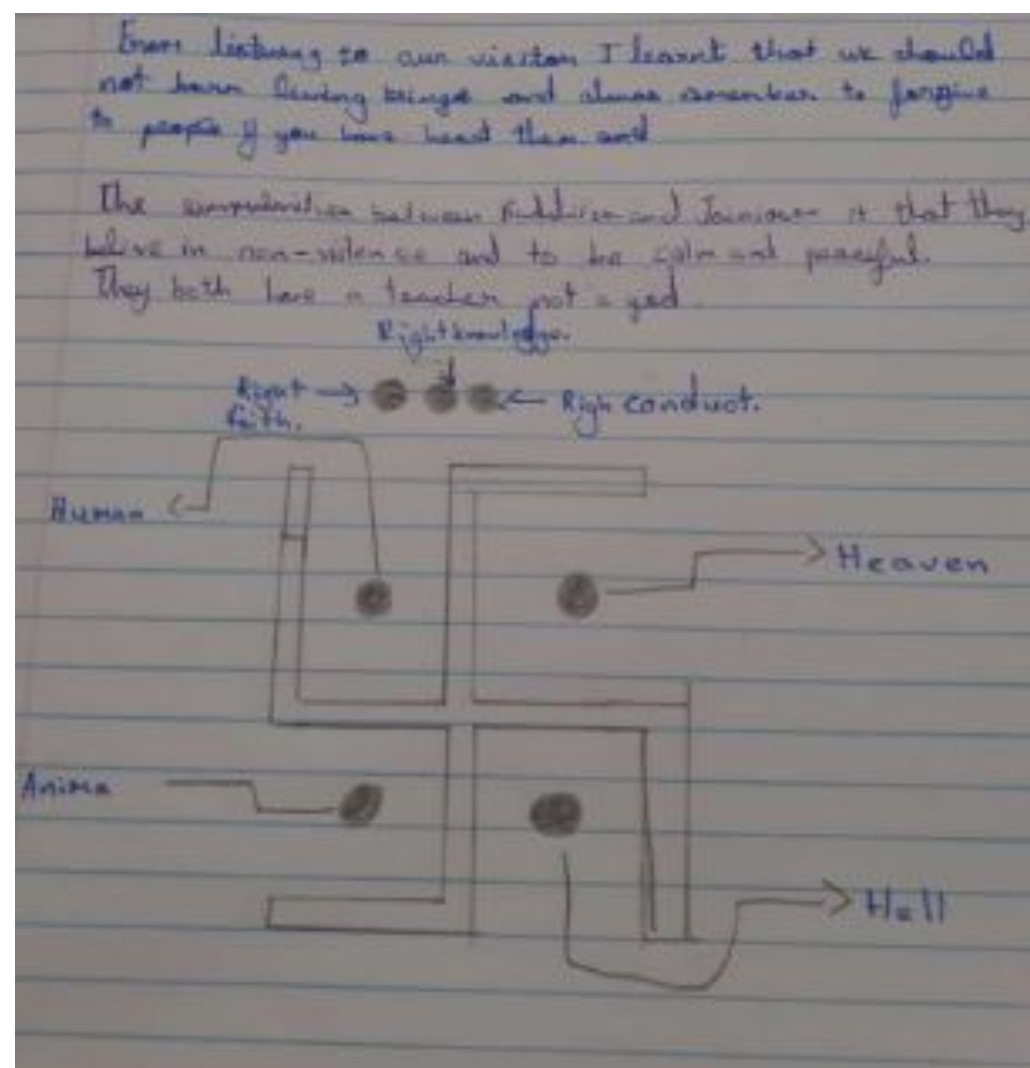 From listning to our visitor I learnt that we should
not harm living beings and almos remember to forgive
to people if you have heart them and
The between Buddhism and Jainism is that they
belive in non-violence and to be calm and peaceful.
They both have a teacher not a god.
Right knowledge.
Right
faith.
Righ conduct.
Human
Heaven
Anima
Hell